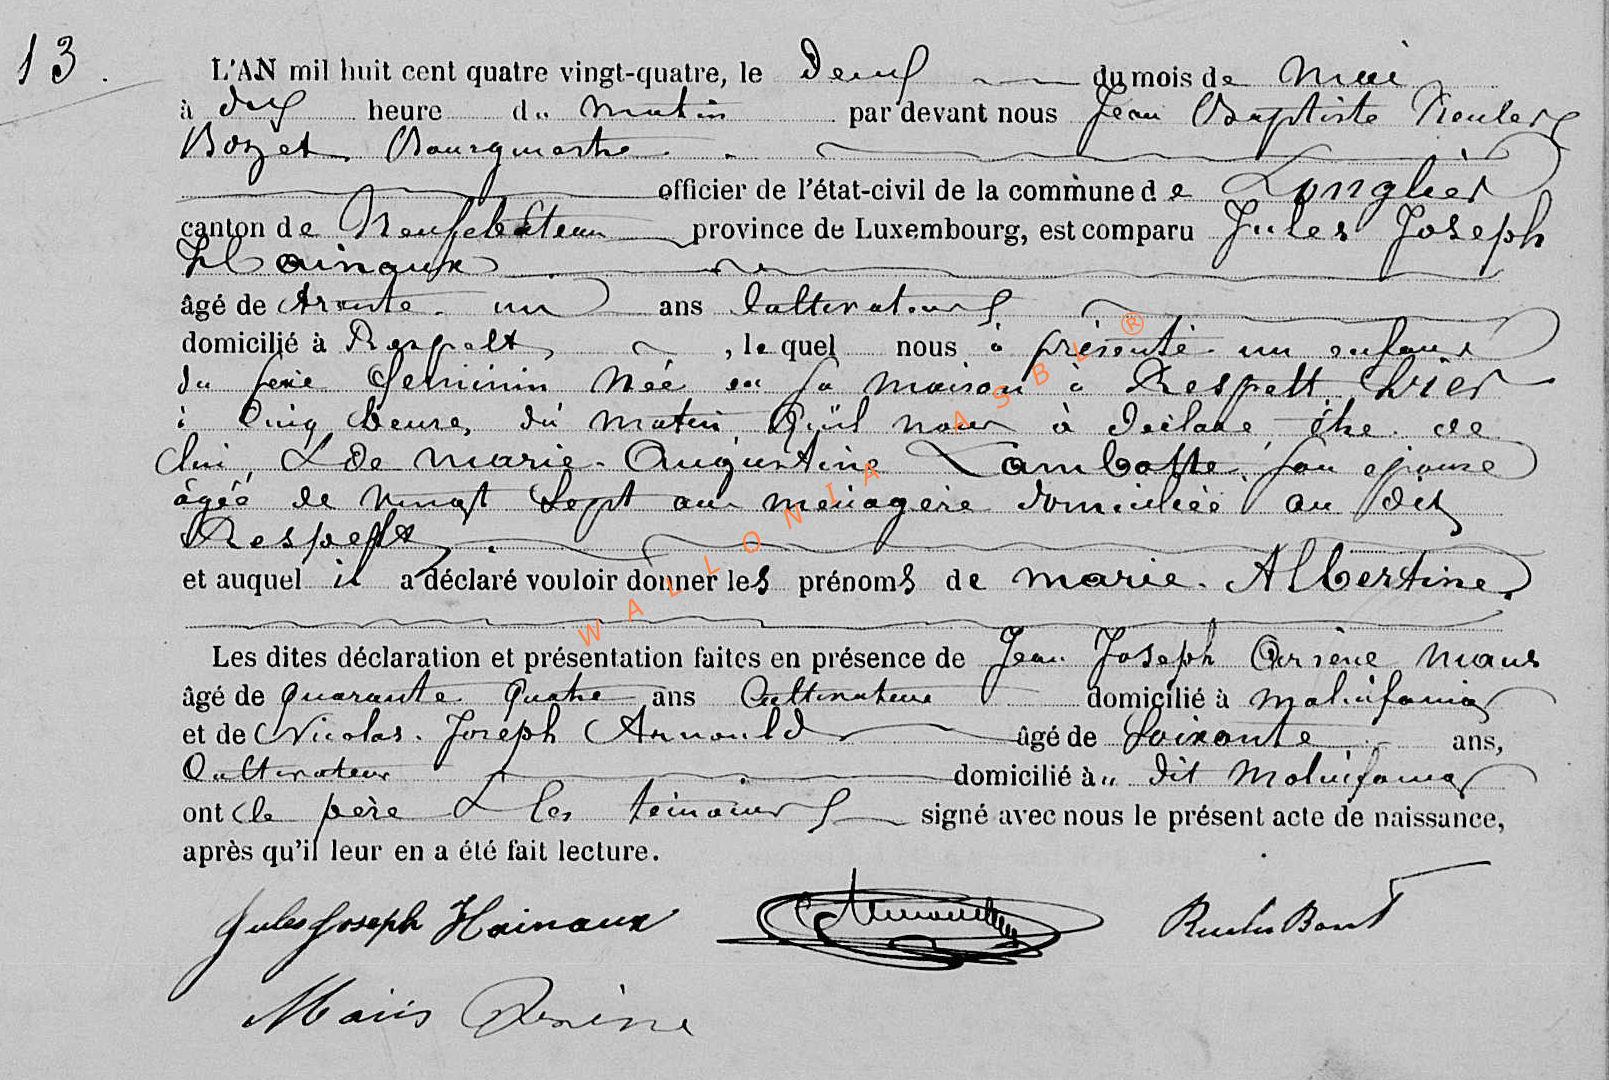 13.
L'AN mil huit cent quatre vingt-quatre, le deux du mois de Mai
à dix heure du Matin par devant nous Jean Baptiste Roulez
Bozet Bourgmestre
officier de l'état-civil de la commune de Longlier
canton de Neufchâteau province de Luxembourg, est comparu Jules Joseph
Hainaux
âgé de trente un ans Cultivateur
domicilié à Respelt, lequel nous à présenté un enfant
du sexe féminin Née en sa maison à Respelt hier
à Cinq heures du matin Qu'il nous à déclaré être de
lui, & de Marie Augustine Lambotte son épouse
âgée de Vingt Sept ans ménagère domiciliée au dit
Respelt
et auquel il a déclaré vouloir donner les prénoms de Marie Albertine
Les dites déclaration et présentation faites en présence de Jean Joseph Maus
âgé de quarante quatre ans Cultivateur domicilié à Molinfaing
et de Nicolas Joseph Arnould âgé de Soixante ans,
Cultivateur domicilié à u dit Molinfaing
ont le père & les témoins signé avec nous le présent acte de naissance,
après qu'il leur en a été fait lecture.
Jules Joseph Hainaux
WALLONIA ASBL ®